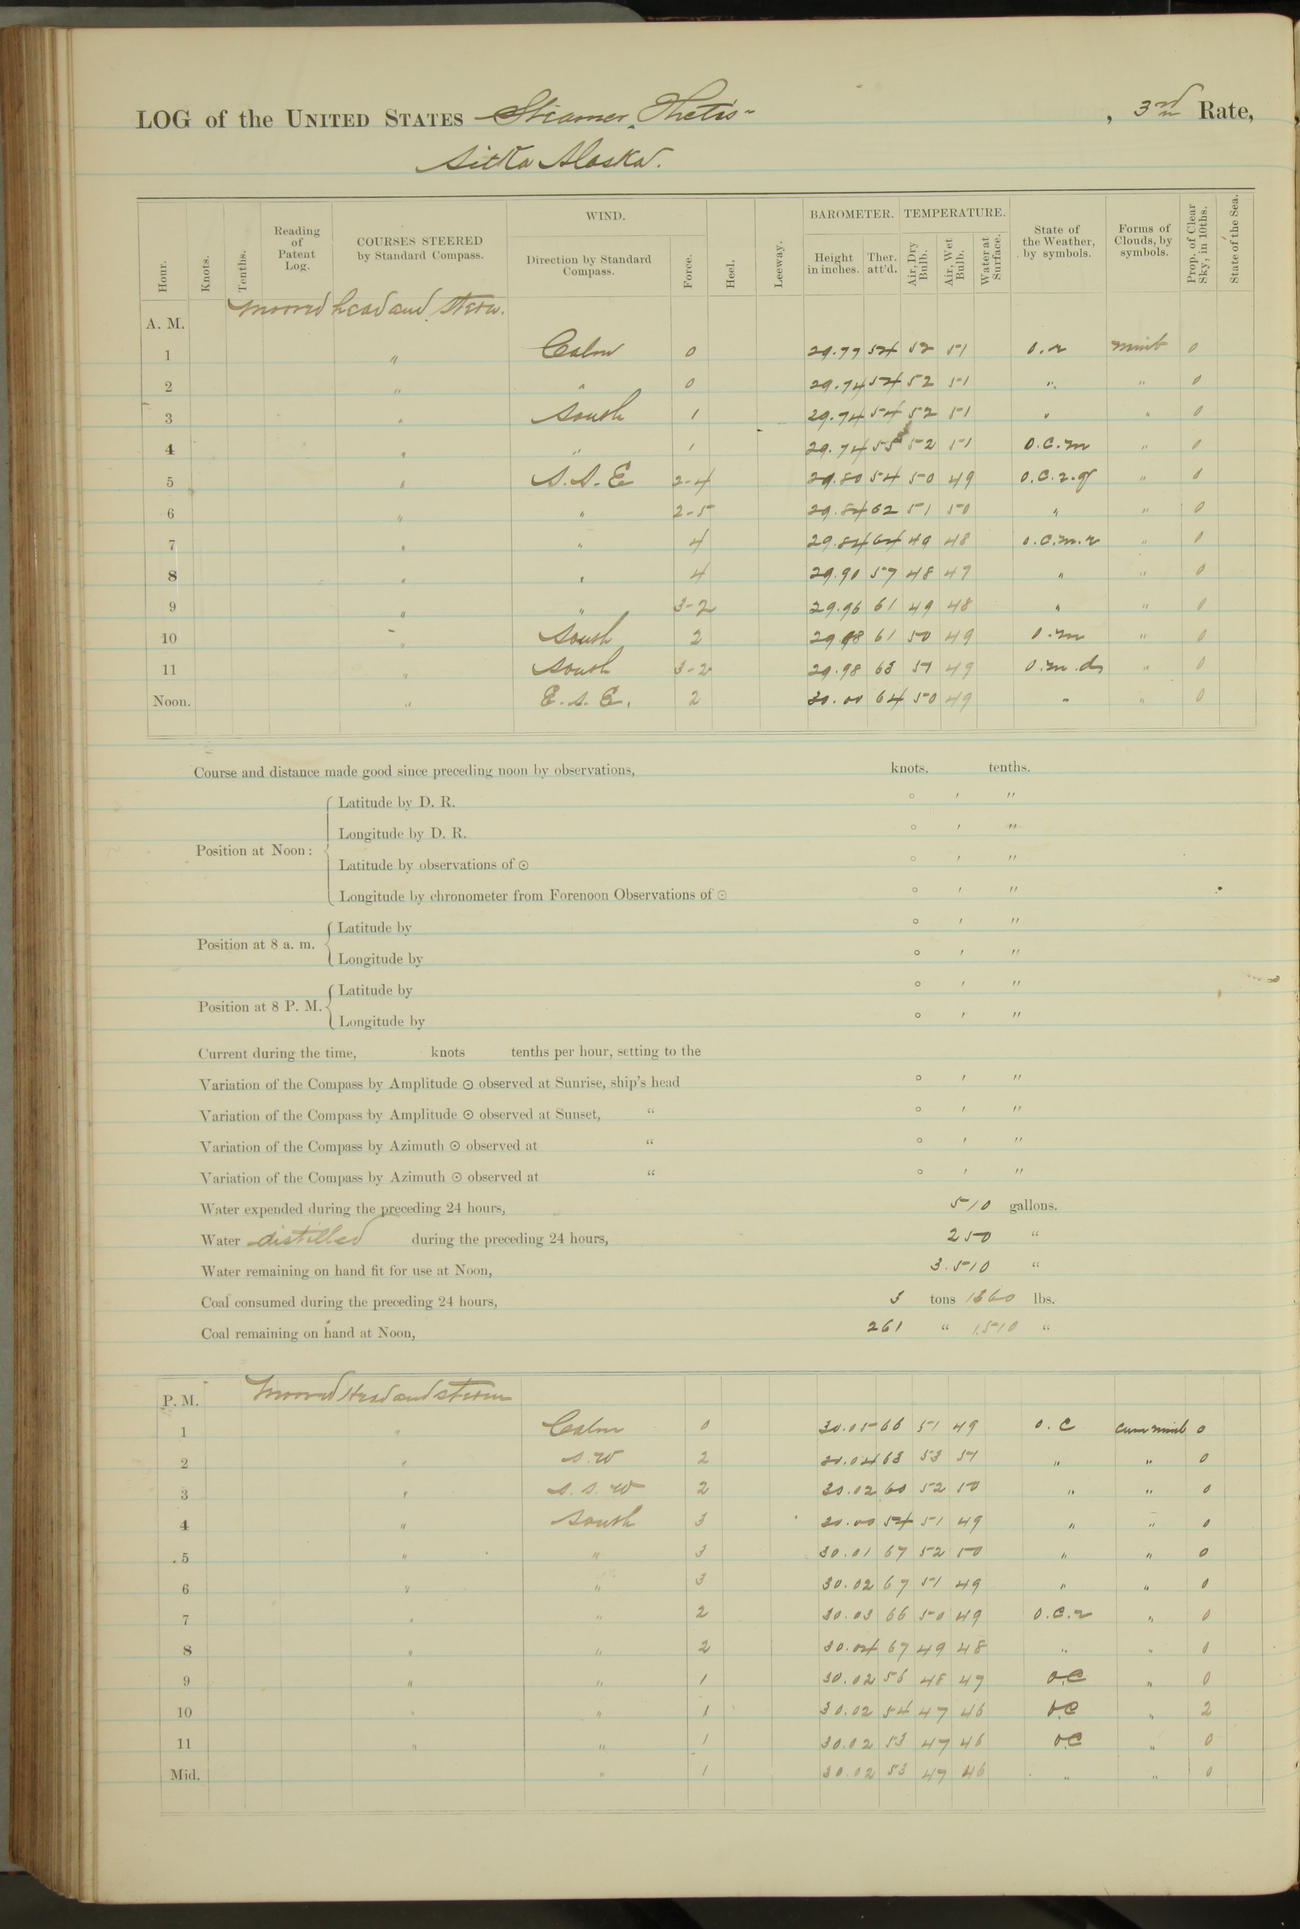 LOG of the UNITED STATES Steamer Thetis , 3rd Rate,
Sitka Alaska.
Hour. Knots. Tenths. Reading of Patent Log. COURSES STEERED by Standard Compass. WIND. Direction by Standard Compass. Force. Heel. Leeway. BAROMETER. Height in inches. Ther. att'd. TEMPERATURE. Air, Dry Bulb. Air, Wet Bulb. Water at Surface. State of the Weather, by symbols. Forms of Clouds, by symbols. Prop. of Clear Sky, in 10ths. State of the Sea.
A. M. Moored head and stern.
1 " Calm 0 29.77 54 52 51 o.r nimb 0
2 " " 0 29.74 54 52 51 " " 0
3 " South 1 29.74 54 52 51 " " 0
4 " " 1 29.74 55 52 51 o.c.m " 0
5 " S.S.E 2-4 29.80 54 50 49 o.c.r.q " 0
6 " " 2-5 29.84 62 51 50 " " 0
7 " " 4 29.84 64 49 48 o.c.m.r " 0
8 " " 4 29.90 57 48 47 " " 0
9 " " 3-2 29.96 61 49 48 " " 0
10 " South 2 29.98 61 50 49 o.m " 0
11 " South 3-2 29.98 63 51 49 o.m.d " 0
Noon. " E.S.E. 2 30.00 64 50 49 " " 0
Course and distance made good since preceding noon by observations, knots, tenths.
Position at Noon: Latitude by D. R. ° ′ ″
Longitude by D. R. ° ′ ″
Latitude by observations of ☉ ° ′ ″
Longitude by chronometer from Forenoon Observations of ☉ ° ′ ″
Position at 8 a. m. Latitude by ° ′ ″
Longitude by ° ′ ″
Position at 8 P. M. Latitude by ° ′ ″
Longitude by ° ′ ″
Current during the time, knots tenths per hour, setting to the
Variation of the Compass by Amplitude ☉ observed at Sunrise, ship's head ° ′ ″
Variation of the Compass by Amplitude ☉ observed at Sunset, " ° ′ ″
Variation of the Compass by Azimuth ☉ observed at " ° ′ ″
Variation of the Compass by Azimuth ☉ observed at " ° ′ ″
Water expended during the preceding 24 hours, 510 gallons.
Water distilled during the preceding 24 hours, 250 "
Water remaining on hand fit for use at Noon, 3.510 "
Coal consumed during the preceding 24 hours, 3 tons 1360 lbs.
Coal remaining on hand at Noon, 261 " 1510 "
P. M. Moored Head and stern
1 " Calm 0 30.05 66 51 49 o.c cum nimb 0
2 " S.W 2 30.04 63 53 51 " " 0
3 " S.S.W 2 30.02 60 52 50 " " 0
4 " South 3 30.00 54 51 49 " " 0
5 " " 3 30.01 67 52 50 " " 0
6 " " 3 30.02 67 51 49 " " 0
7 " " 2 30.03 66 50 49 o.c.r " 0
8 " " 2 30.04 67 49 48 " " 0
9 " " 1 30.02 56 48 47 o.c " 0
10 " " 1 30.02 54 47 46 b.c " 2
11 " " 1 30.02 53 47 46 o.c " 0
Mid. " 1 30.02 53 47 46 " " 0